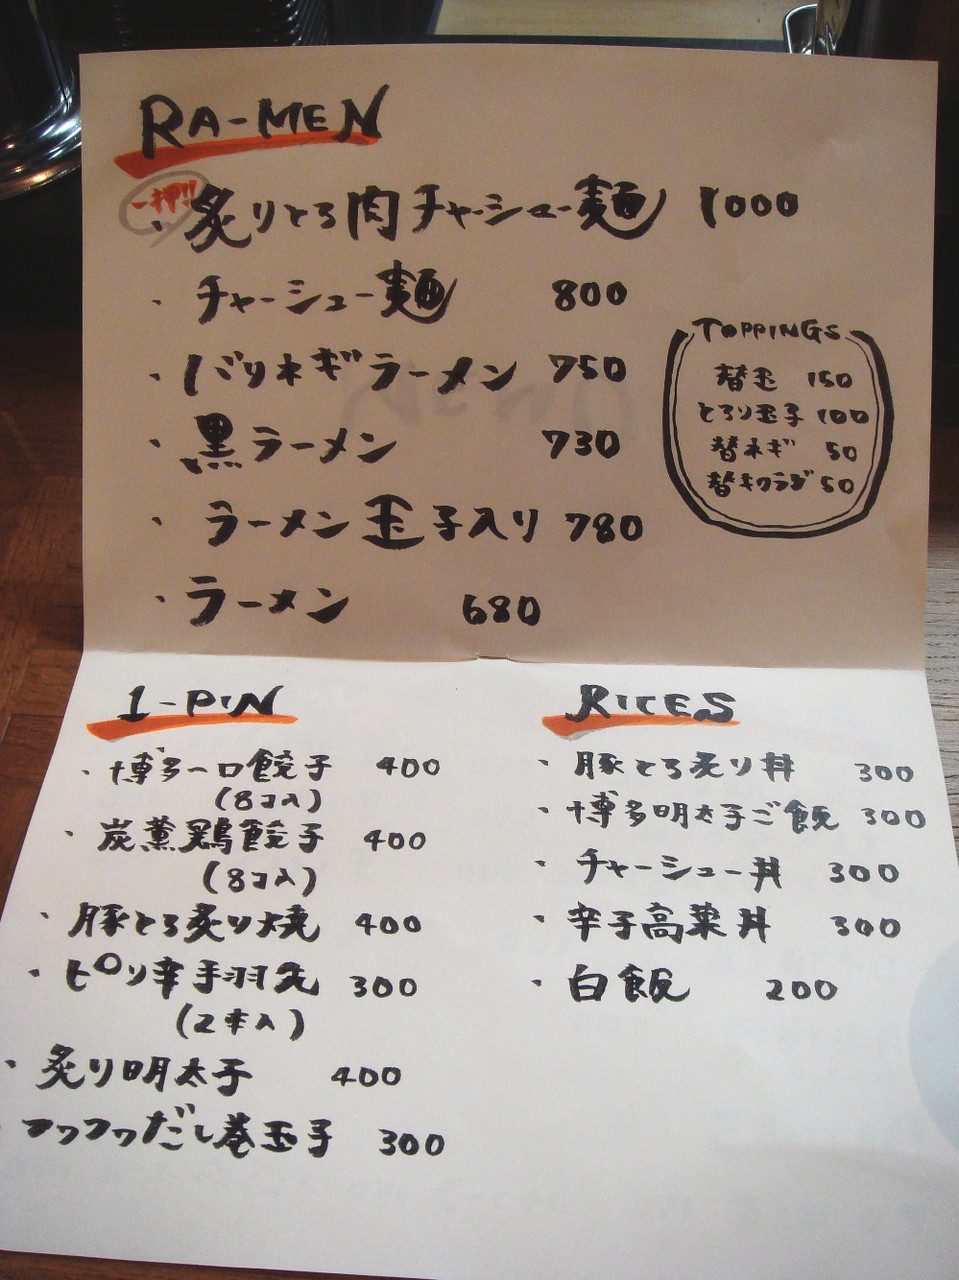 RA-MEN
一押!!
・炙りとろ肉チャーシュー麺 1000
・チャーシュー麺 800
・バリネギラーメン 750
・黒ラーメン 730
・ラーメン玉子入り 780
・ラーメン 680
TOPPINGS
替玉 150
とろり玉子 100
替ネギ 50
替キクラゲ 50
1-PIN
・博多一口餃子 400
(8コ入)
・炭薫鶏餃子 400
(8コ入)
・豚とろ炙り焼 400
・ピリ辛手羽先 300
(2本入)
・炙り明太子 400
・フワフワだし巻玉子 300
RICES
・豚とろ炙り丼 300
・博多明太子ご飯 300
・チャーシュー丼 300
・辛子高菜丼 300
・白飯 200